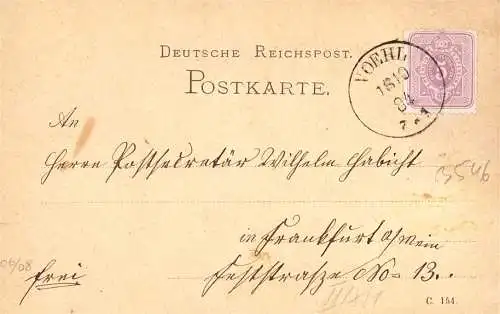 DEUTSCHE REICHSPOST.
POSTKARTE.
VOEHL
16 10
84
An
Herrn Postsecretär Wilhelm Habicht
B546
in Frankfurt a/Mein
frei
Feststraße No 13.
C. 154.